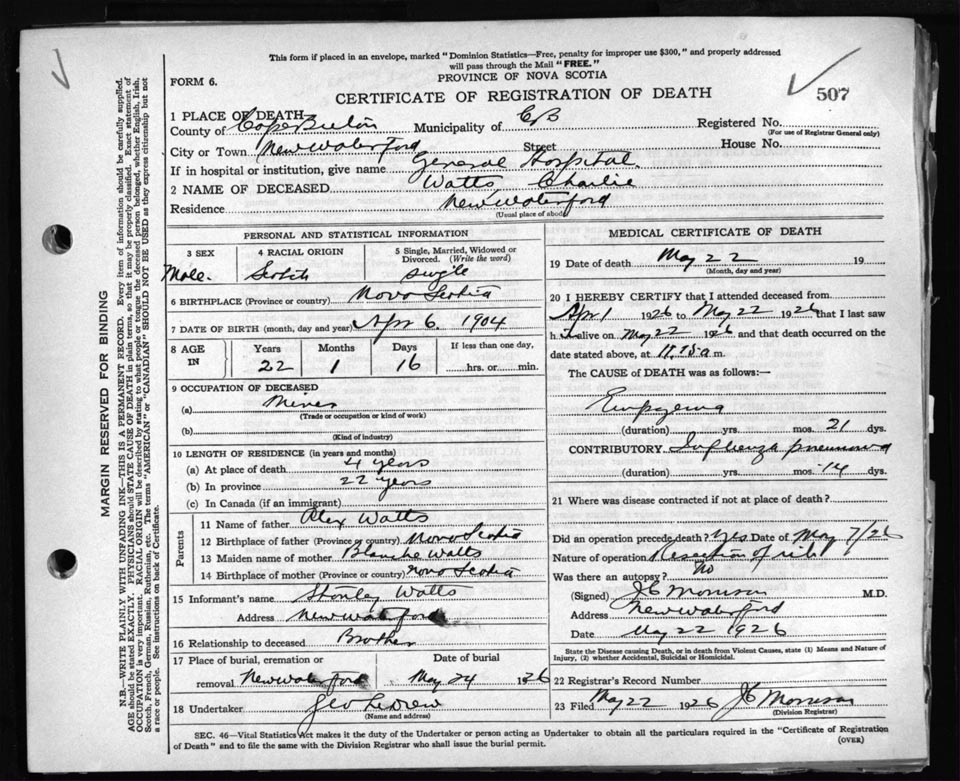 This form if placed in an envelope, marked "Dominion Statistics—Free, penalty for improper use $300," and properly addressed
will pass through the Mail "FREE."
PROVINCE OF NOVA SCOTIA
FORM 6.
CERTIFICATE OF REGISTRATION OF DEATH
507
1 PLACE OF DEATH—
County of Cape Breton Municipality of CB Registered No.
(For use of Registrar General only)
City or Town New Waterford Street House No.
If in hospital or institution, give name General Hospital
2 NAME OF DECEASED Watts Charlie
Residence New Waterford
(Usual place of abode)
PERSONAL AND STATISTICAL INFORMATION
3 SEX 4 RACIAL ORIGIN 5 Single, Married, Widowed or
Divorced. (Write the word)
Male. Scotch single
6 BIRTHPLACE (Province or country) Nova Scotia
7 DATE OF BIRTH (month, day and year) Apr 6. 1904
8 AGE IN Years Months Days If less than one day,
22 1 16 hrs. or min.
9 OCCUPATION OF DECEASED
(a) Miner
(Trade or occupation or kind of work)
(b)
(Kind of industry)
10 LENGTH OF RESIDENCE (in years and months)
(a) At place of death 4 years
(b) In province 22 years
(c) In Canada (if an immigrant)
Parents
11 Name of father Alex Watts
12 Birthplace of father (Province or country) Nova Scotia
13 Maiden name of mother Blanche Watts
14 Birthplace of mother (Province or country) Nova Scotia
15 Informant's name Stanley Watts
Address New Waterford
16 Relationship to deceased Brother
17 Place of burial, cremation or Date of burial
removal New Waterford May 24 1926
18 Undertaker Geo Ledrew
(Name and address)
MEDICAL CERTIFICATE OF DEATH
19 Date of death May 22 19
(Month, day and year)
20 I HEREBY CERTIFY that I attended deceased from
Apr 1 1926 to May 22 1926 that I last saw
h alive on May 22 1926 and that death occurred on
date stated above, at m.
The CAUSE of DEATH was as follows:—
Empyema
(duration) yrs. mos. 21 dys.
CONTRIBUTORY. Influenza pneumonia
(duration) yrs. mos. 14 dys.
21 Where was disease contracted if not at place of death?
Did an operation precede death? Yes Date of May 7/26
Nature of operation Resection of rib
Was there an autopsy? No
(Signed) JC Morrison M.D.
Address New Waterford
Date May 22 1926
State the Disease causing Death, or in death from Violent Causes, state (1) Means and Nature of
Injury, (2) whether Accidental, Suicidal or Homicidal.
22 Registrar's Record Number
23 Filed May 22 1926 JC Morrison
(Division Registrar)
SEC. 46—Vital Statistics Act makes it the duty of the Undertaker or person acting as Undertaker to obtain all the particulars required in the "Certificate of Registration
of Death" and to file the same with the Division Registrar who shall issue the burial permit.
(OVER)
MARGIN RESERVED FOR BINDING
N.B.—WRITE PLAINLY WITH UNFADING INK—THIS IS A PERMANENT RECORD. Every item of information should be carefully supplied.
AGE should be stated EXACTLY. PHYSICIANS should STATE CAUSE OF DEATH in plain terms, so that it may be properly classified. Exact statement of
OCCUPATION is very important. RACIAL ORIGIN will be described by stating to what people or tongue the deceased person belonged, whether English, Irish,
Scotch, French, German, Russian, Ruthenian, etc. The terms "AMERICAN" or "CANADIAN" SHOULD NOT BE USED as they express citizenship but not
a race or people. See instructions on back of Certificate.